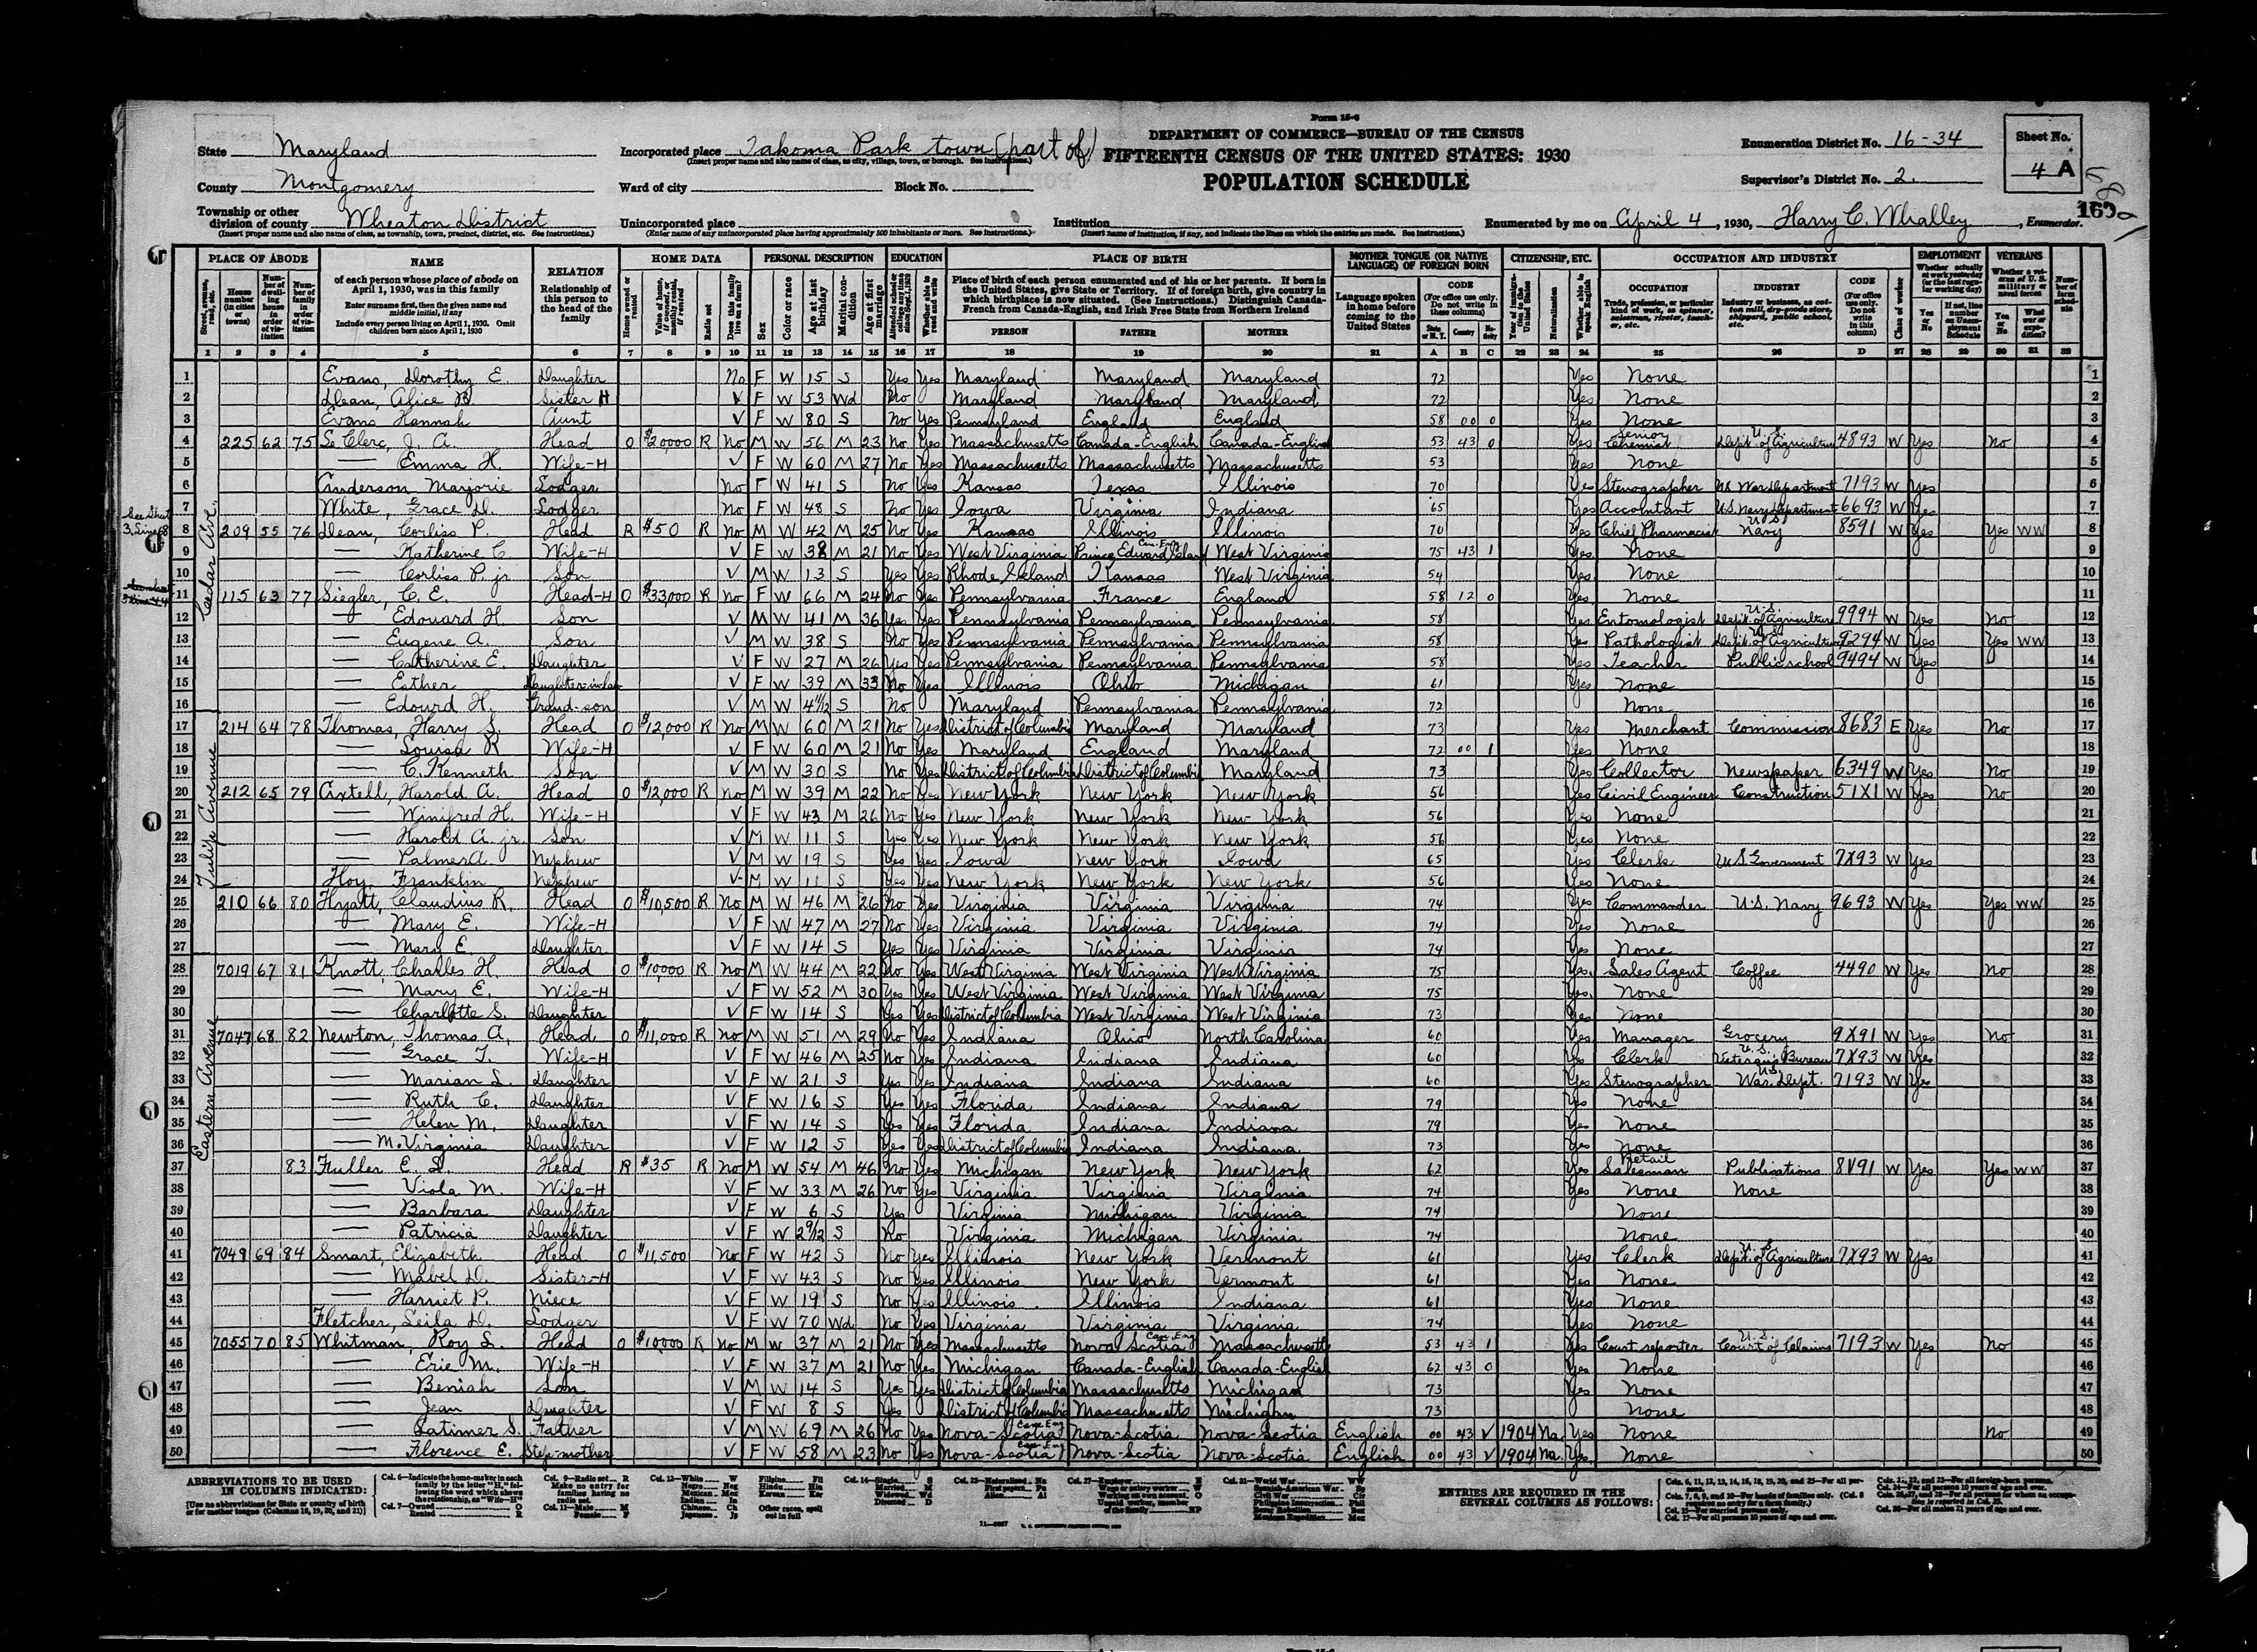 Form 15-6
DEPARTMENT OF COMMERCE—BUREAU OF THE CENSUS
FIFTEENTH CENSUS OF THE UNITED STATES: 1930
POPULATION SCHEDULE
State Maryland
County Montgomery
Township or other division of county Wheaton District
(Insert proper name and also name of class, as township, town, precinct, district, etc. See instructions.)
Incorporated place Takoma Park town (part of)
(Insert proper name and also name of class, as city, village, town, or borough. See instructions.)
Ward of city Block No.
Unincorporated place
(Enter name of any unincorporated place having approximately 500 inhabitants or more. See instructions.)
Institution
(Insert name of institution, if any, and indicate the lines on which the entries are made. See instructions.)
Enumeration District No. 16-34
Supervisor's District No. 2.
Sheet No. 4 A
Enumerated by me on April 4, 1930, Harry C. Whalley, Enumerator.
PLACE OF ABODE NAME RELATION HOME DATA PERSONAL DESCRIPTION EDUCATION PLACE OF BIRTH MOTHER TONGUE (OR NATIVE LANGUAGE) OF FOREIGN BORN CITIZENSHIP, ETC. OCCUPATION AND INDUSTRY EMPLOYMENT VETERANS
of each person whose place of abode on April 1, 1930, was in this family
Enter surname first, then the given name and middle initial, if any
Include every person living on April 1, 1930. Omit children born since April 1, 1930
Relationship of this person to the head of the family
Place of birth of each person enumerated and of his or her parents. If born in the United States, give State or Territory. If of foreign birth, give country in which birthplace is now situated. (See Instructions.) Distinguish Canada-French from Canada-English, and Irish Free State from Northern Ireland
PERSON FATHER MOTHER
Language spoken in home before coming to the United States
CODE OCCUPATION INDUSTRY CODE
1 2 3 4 5 6 7 8 9 10 11 12 13 14 15 16 17 18 19 20 21 A B C 22 23 24 25 26 D 27 28 29 30 31 32
Cedar Ave.
1 Evans, Dorothy E. Daughter No F W 15 S Yes Yes Maryland Maryland Maryland 72 Yes None 1
2 Dean, Alice B Sister H V F W 53 Wd No Maryland Maryland Maryland 72 Yes None 2
3 Evans Hannah Aunt V F W 80 S No Yes Pennsyland England England 58 00 0 Yes None 3
4 225 62 75 Le Clerc, J. A. Head O $20,000 R No M W 56 M 23 No Yes Massachusetts Canada-English Canada-English 53 43 0 Yes Senior Chemist U.S. Dept. of Agriculture 4893 W Yes No 4
5 — Emma H. Wife-H V F W 60 M 27 No Yes Massachusetts Massachusetts Massachusetts 53 Yes None 5
6 Anderson Marjorie Lodger No F W 41 S No Yes Kansas Texas Illinois 70 Yes Stenographer U.S. War Department 7193 W Yes 6
7 White, Grace D. Lodger No F W 48 S No Yes Iowa Virginia Indiana 65 Yes Accountant U.S. Navy Department 6693 W Yes 7
8 209 55 76 Dean, Corliss P. Head R $50 R No M W 42 M 25 No Yes Kansas Illinois Illinois 70 Yes Chief Pharmacist U.S. Navy 8591 W Yes Yes WW 8
9 — Katherine C. Wife-H V F W 38 M 21 No Yes West Virginia Prince Edward Island Can. Eng West Virginia 75 43 1 Yes None 9
10 — Corliss P. jr Son V M W 13 S Yes Yes Rhode Island Kansas West Virginia 54 Yes None 10
11 115 63 77 Siegler, C. E. Head-H O $33,000 R No F W 66 M 24 No Yes Pennsylvania France England 58 12 0 Yes None 11
12 — Edouard H. Son V M W 41 M 36 Yes Yes Pennsylvania Pennsylvania Pennsylvania 58 Yes Entomologist U.S. Dept. of Agriculture 9994 W Yes No 12
13 — Eugene A. Son V M W 38 S No Yes Pennsylvania Pennsylvania Pennsylvania 58 Yes Pathologist U.S. Dept. of Agriculture 9294 W Yes Yes WW 13
14 — Catherine E. Daughter V F W 27 M 26 Yes Yes Pennsylvania Pennsylvania Pennsylvania 58 Yes Teacher Public school 9494 W Yes 14
15 — Esther Daughter-in-law V F W 39 M 33 No Yes Illinois Ohio Michigan 61 Yes None 15
16 — Edourd H. Grand-son V M W 4 11/12 S No Maryland Pennsylvania Pennsylvania 72 None 16
Tulip Avenue
17 214 64 78 Thomas, Harry S. Head O $12,000 R No M W 60 M 21 No Yes District of Columbia Maryland Maryland 73 Yes Merchant Commission 8683 E Yes No 17
18 — Louisa R Wife-H V F W 60 M 21 No Yes Maryland England Maryland 72 00 1 Yes None 18
19 — C. Kenneth Son V M W 30 S No Yes District of Columbia District of Columbia Maryland 73 Yes Collector Newspaper 6349 W Yes No 19
20 212 65 79 Axtell, Harold A. Head O $12,000 R no M W 39 M 22 No Yes New York New York New York 56 Yes Civil Engineer Construction 51X1 W Yes No 20
21 — Winifred H. Wife-H V F W 43 M 26 No Yes New York New York New York 56 Yes None 21
22 — Harold A. jr. Son V M W 11 S Yes Yes New York New York New York 56 Yes None 22
23 — Palmer A. Nephew V M W 19 S Yes Yes Iowa New York Iowa 65 Yes Clerk U.S Goverment 7X93 W Yes 23
24 Hoy, Franklin Nephew V M W 11 S Yes Yes New York New York New York 56 Yes None 24
25 210 66 80 Hyatt, Claudius R. Head O $10,500 R No M W 46 M 26 No Yes Virginia Virginia Virginia 74 Yes Commander U.S. Navy 9693 W Yes Yes WW 25
26 — Mary E. Wife-H V F W 47 M 27 No Yes Virginia Virginia Virginia 74 Yes None 26
27 — Mary E. Daughter V F W 14 S Yes Yes Virginia Virginia Virginia 74 Yes None 27
Eastern Avenue
28 7019 67 81 Knott, Charles H. Head O $10000 R No M W 44 M 22 No Yes West Virginia West Virginia West Virginia 75 Yes Sales Agent Coffee 4490 W Yes No 28
29 — Mary E. Wife-H V F W 52 M 30 Yes Yes West Virginia West Virginia West Virginia 75 Yes None 29
30 — Charlotte S. Daughter V F W 14 S Yes Yes District of Columbia West Virginia West Virginia 73 Yes None 30
31 7047 68 82 Newton, Thomas A. Head O $11,000 R No M W 51 M 29 No Yes Indiana Ohio North Carolina 60 Yes Manager Grocery 9X91 W Yes No 31
32 — Grace T. Wife-H V F W 46 M 25 No Yes Indiana Indiana Indiana 60 Yes Clerk U.S. Veteran's Bureau 7X93 W Yes 32
33 — Marian L. Daughter V F W 21 S Yes Yes Indiana Indiana Indiana 60 Yes Stenographer U.S. War Dept. 7193 W Yes 33
34 — Ruth C. Daughter V F W 16 S Yes Yes Florida Indiana Indiana 79 Yes None 34
35 — Helen M. Daughter V F W 14 S Yes Yes Florida Indiana Indiana 79 Yes None 35
36 — M. Virginia Daughter V F W 12 S Yes Yes District of Columbia Indiana Indiana 73 Yes None 36
37 83 Fuller E. D. Head R $35 R No M W 54 M 46 No Yes Michigan New York New York 62 Yes Retail Salesman Publications 8V91 W Yes Yes WW 37
38 — Viola M. Wife-H V F W 33 M 26 No Yes Virginia Virginia Virginia 74 Yes None None 38
39 — Barbara Daughter V F W 6 S Yes Virginia Michigan Virginia 74 None 39
40 — Patricia Daughter V F W 2 9/12 S No Virginia Michigan Virginia 74 None 40
41 7049 69 84 Smart, Elizabeth Head O $11,500 No F W 42 S No Yes Illinois New York Vermont 61 Yes Clerk U.S. Dept. of Agriculture 7X93 W Yes 41
42 — Mabel D. Sister-H V F W 43 S No Yes Illinois New York Vermont 61 Yes None 42
43 — Harriet P. Niece V F W 19 S No Yes Illinois Illinois Indiana 61 Yes None 43
44 Fletcher, Leila D. Lodger V F W 70 Wd No Yes Virginia Virginia Virginia 74 Yes None 44
45 7055 70 85 Whitman, Roy L. Head O $10000 R no M W 37 M 21 No Yes Massachusetts Nova Scotia Can. Eng Massachusetts 53 43 1 Yes Court reporter U.S. Court of Claims 7193 W Yes No 45
46 — Erie M. Wife-H V F W 37 M 21 No Yes Michigan Canada-English Canada-English 62 43 0 Yes None 46
47 — Beniah Son V M W 14 S Yes Yes District of Columbia Massachusetts Michigan 73 Yes None 47
48 — Jean Daughter V F W 8 S Yes District of Columbia Massachusetts Michigan 73 None 48
49 — Latimer S. Father V M W 69 M 26 No Yes Nova-Scotia Can. Eng Nova-Scotia Nova-Scotia English 00 43 V 1904 Na Yes None No 49
50 — Florence E. Step-mother V F W 58 M 23 No Yes Nova-Scotia Can. Eng Nova-Scotia Nova-Scotia English 00 43 V 1904 Na. Yes None 50
ABBREVIATIONS TO BE USED IN COLUMNS INDICATED:
[Use no abbreviations for State or country of birth or for mother tongue (Columns 18, 19, 20, and 21)]
ENTRIES ARE REQUIRED IN THE SEVERAL COLUMNS AS FOLLOWS: